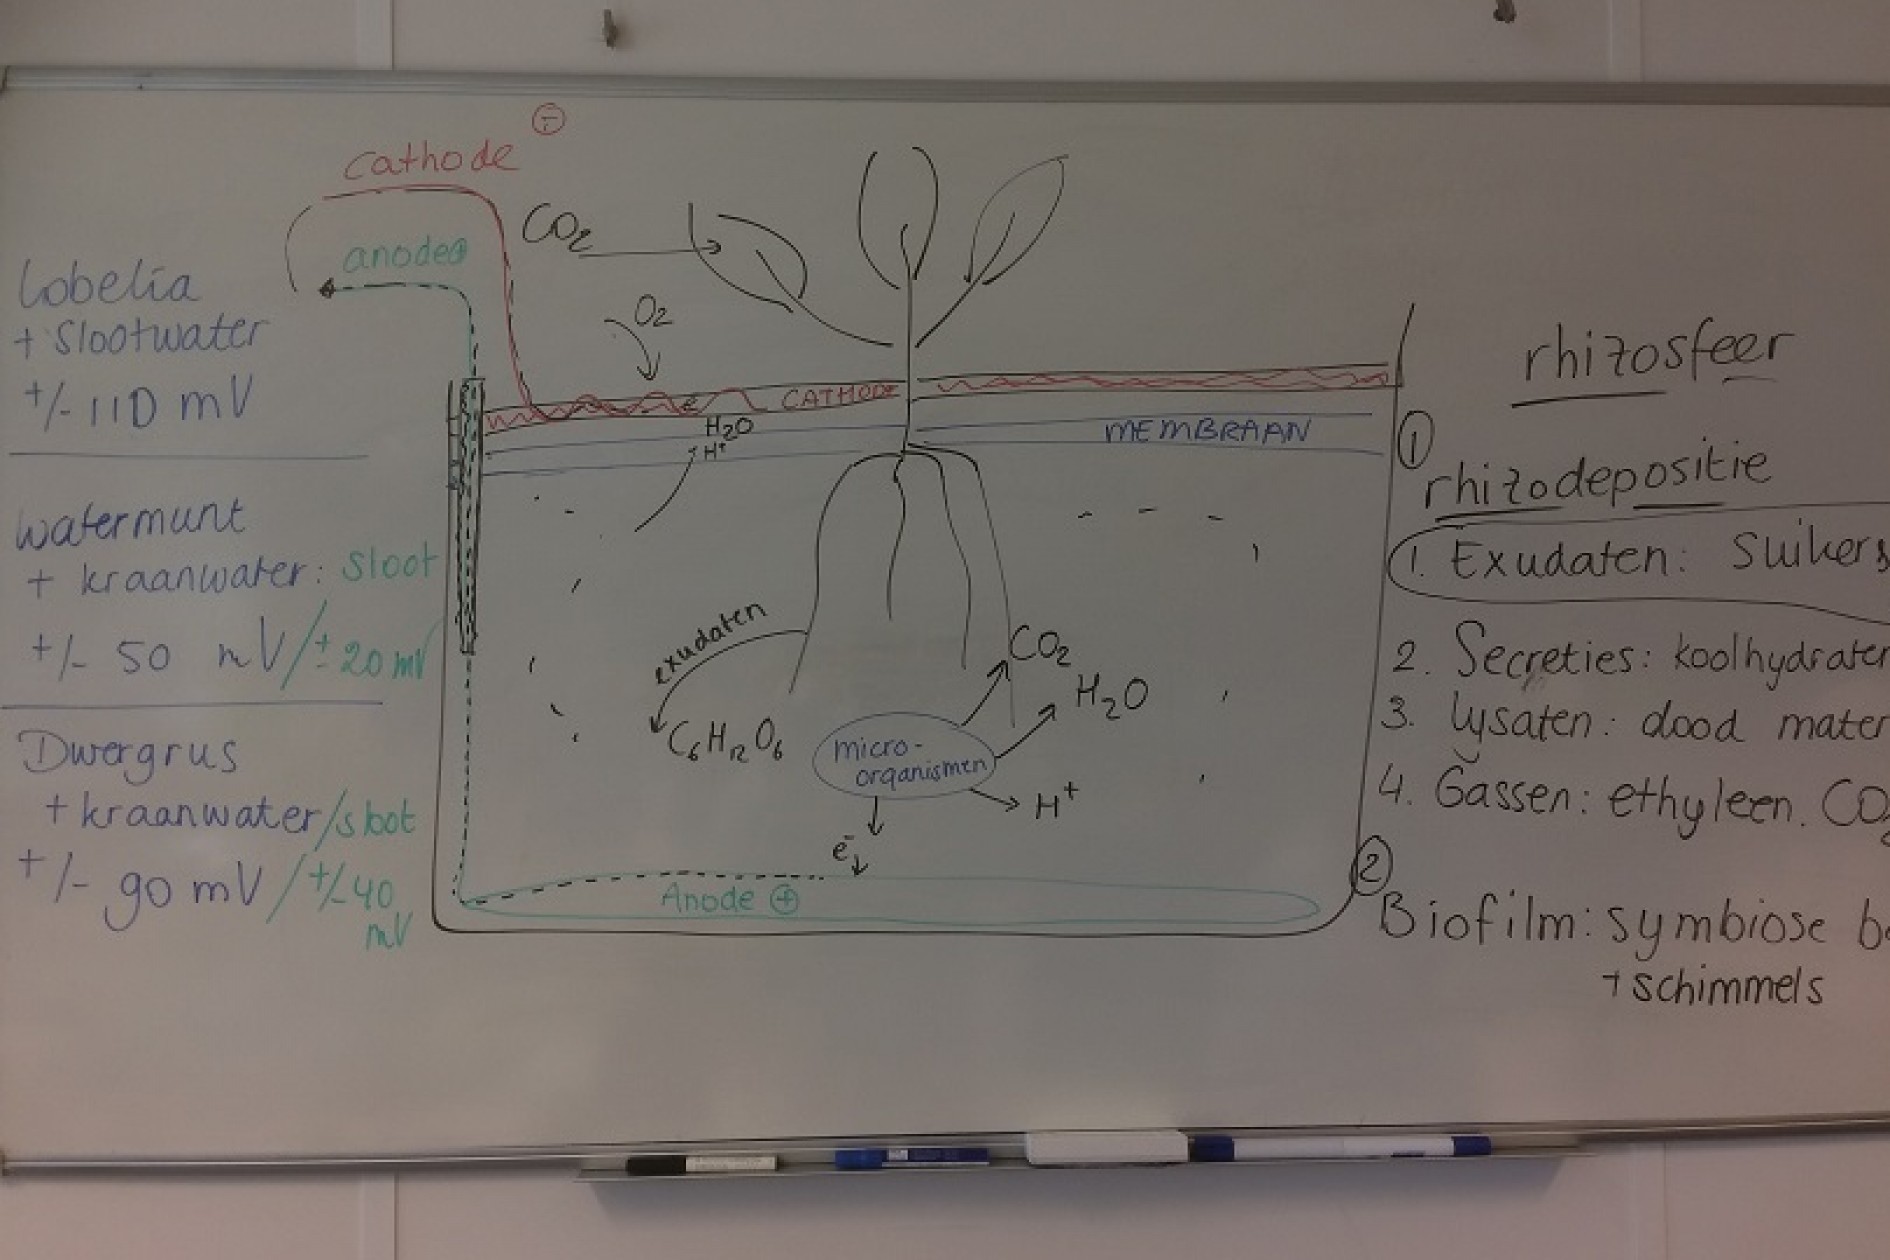 cathode ⊖
anode⊕
Lobelia
+ Slootwater
+/- 110 mV
watermunt
+ kraanwater: sloot
+/- 50 mV/± 20 mV
Dwergrus
+ kraanwater/sloot
+/- 90 mV/+/-40
mV
CO₂
O₂
CATHODE
H₂O
H⁺
MEMBRAAN
exudaten
C₆H₁₂O₆
micro-
organismen
CO₂
H₂O
H⁺
e⁻
Anode ⊕
rhizosfeer
①
rhizodepositie
1. Exudaten: suikers
2. Secreties: koolhydraten
3. Lysaten: dood mater
4. Gassen: ethyleen. CO₂
②
Biofilm: symbiose ba
+ schimmels